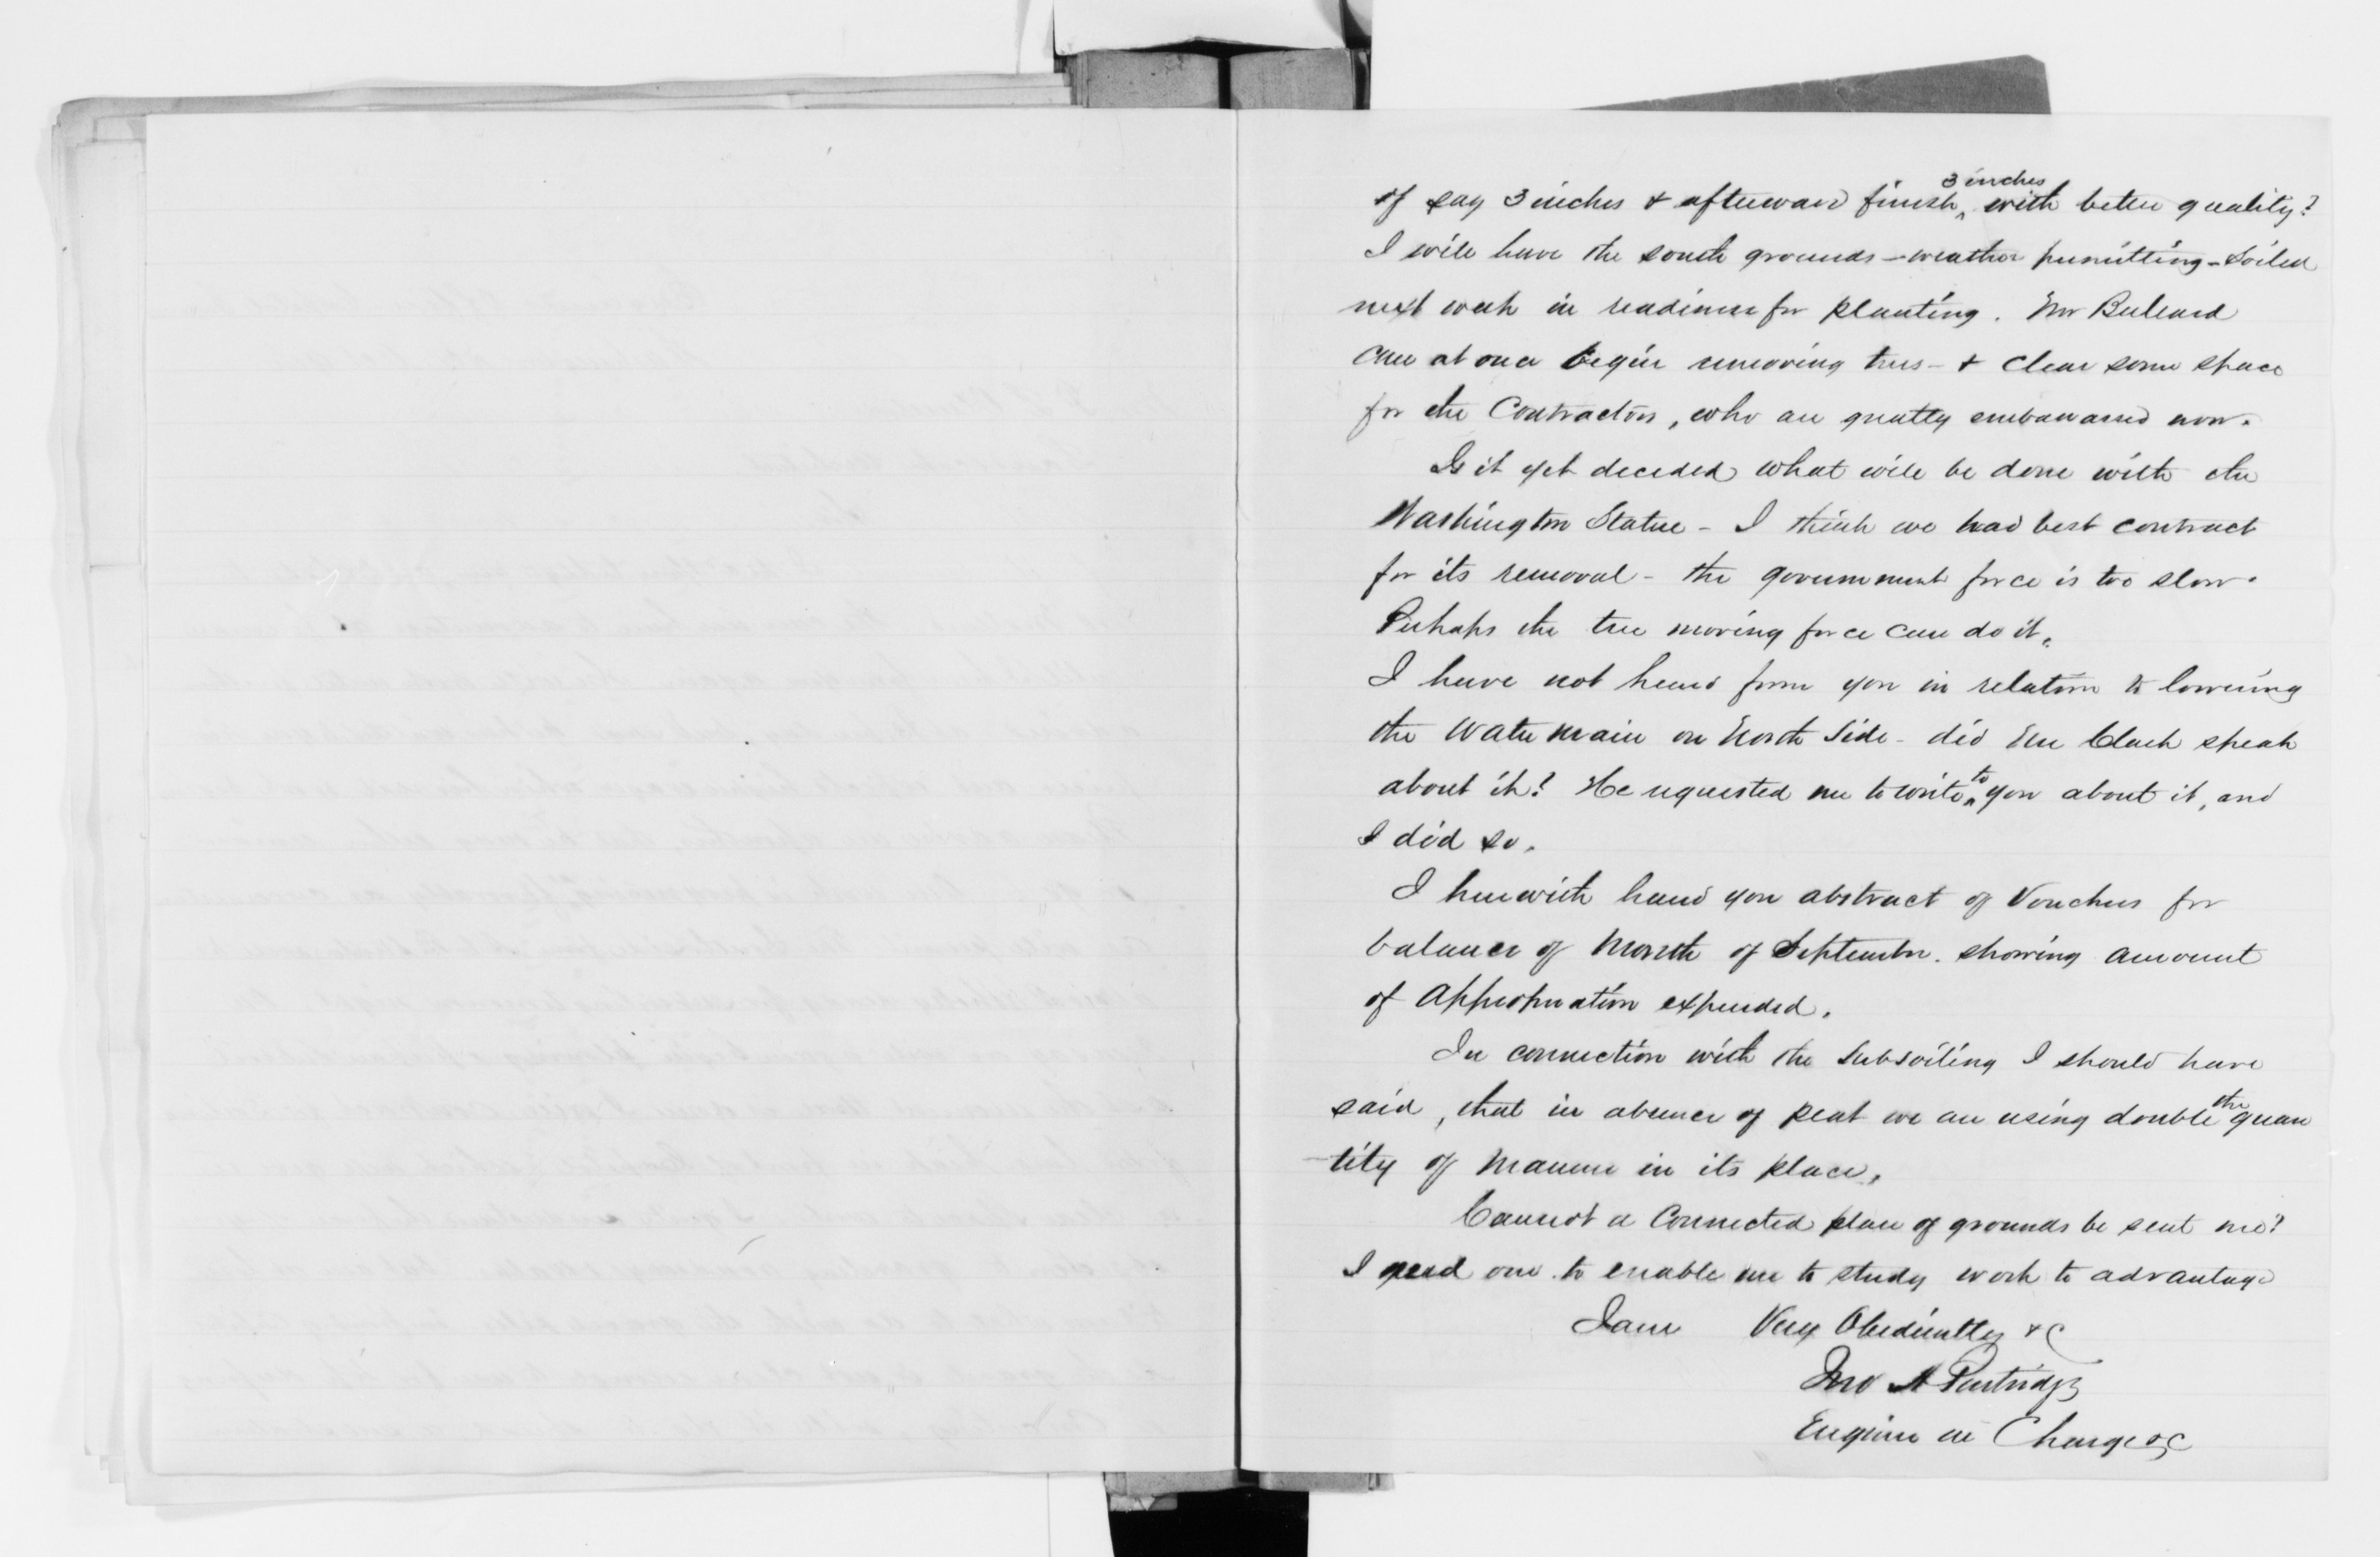 of say 3 inches & afterward finish 3 inches with better quality?
I will have the south grounds - weather permitting - soiled
next week in readiness for planting. Mr Bulcard
can at once begin removing trees - & clear some space
for the Contractors, who are greatly embarrassed now.
Is it yet decided what will be done with the
Washington Statue - I think we had best contract
for its removal - the government force is too slow.
Perhaps the tree moving force can do it.
I have not heard from you in relation to lowering
the Water main on North Side - did Mr Clark speak
about it? He requested me to write to you about it, and
I did so.
I herewith hand you abstract of Vouchers for
balance of Month of September. showing amount
of Appropriation expended.
In connection with the Subsoiling I should have
said, that in absence of peat we are using double the quan
-tity of Manure in its place.
Cannot a Connected plan of grounds be sent me?
I need one to enable me to study work to advantage
I am Very Obediently &c
Jno A Partridge
Engineer in Charge &c